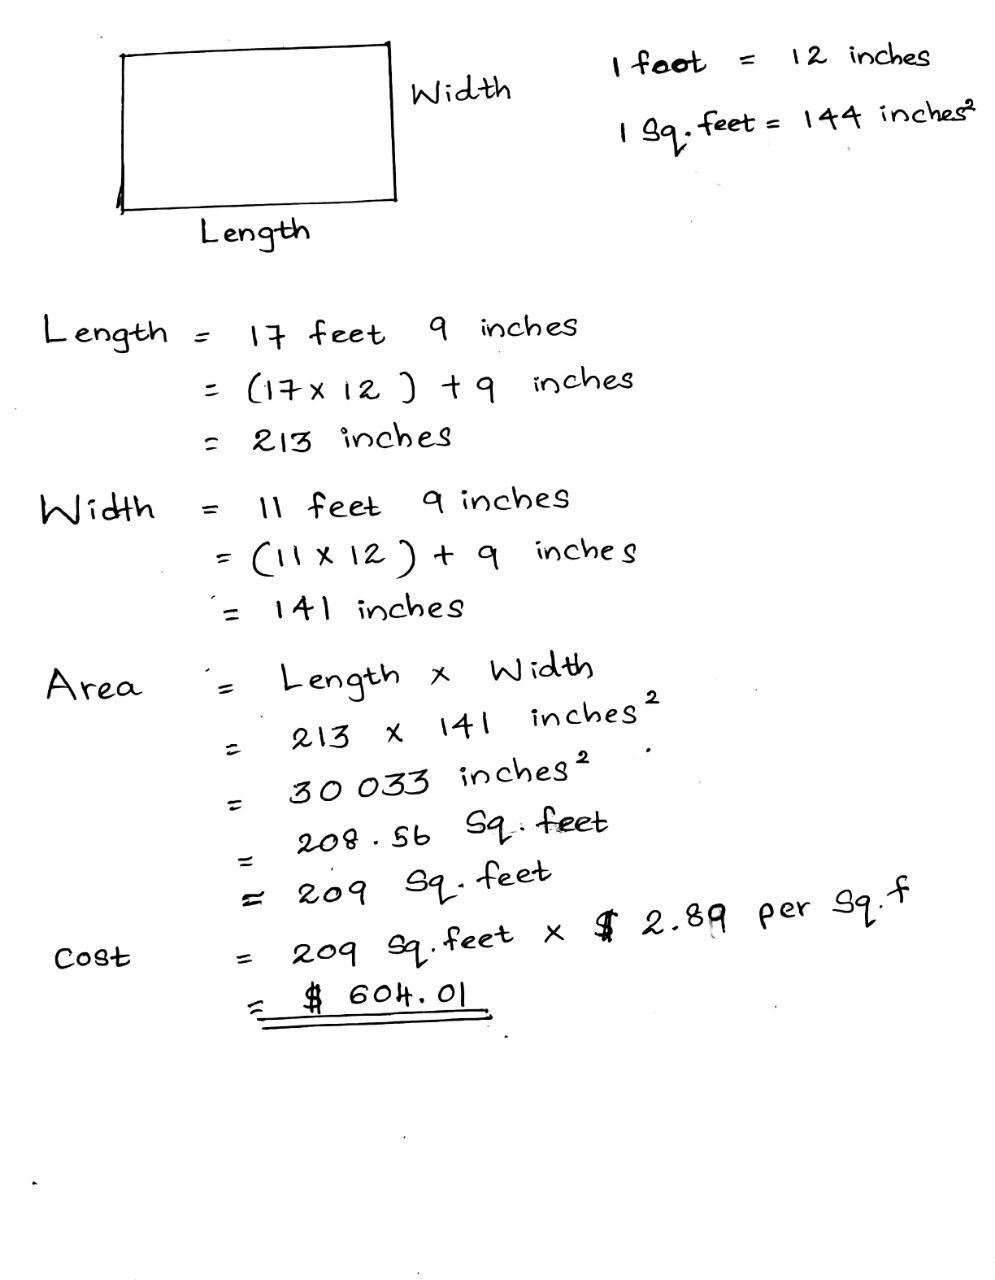 Width
1 foot = 12 inches
1 Sq. feet = 144 inches²
Length
Length = 17 feet 9 inches
= (17 x 12) + 9 inches
= 213 inches
Width = 11 feet 9 inches
= (11 x 12) + 9 inches
= 141 inches
Area = Length x Width
= 213 x 141 inches²
= 30 033 inches²
= 208.56 Sq. feet
≈ 209 Sq. feet
Cost = 209 Sq. feet x $ 2.89 per Sq. f
= $ 604.01